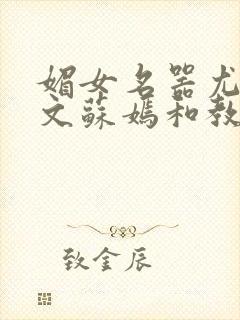 媚女名器尤
文蘇嫣和教
致金辰